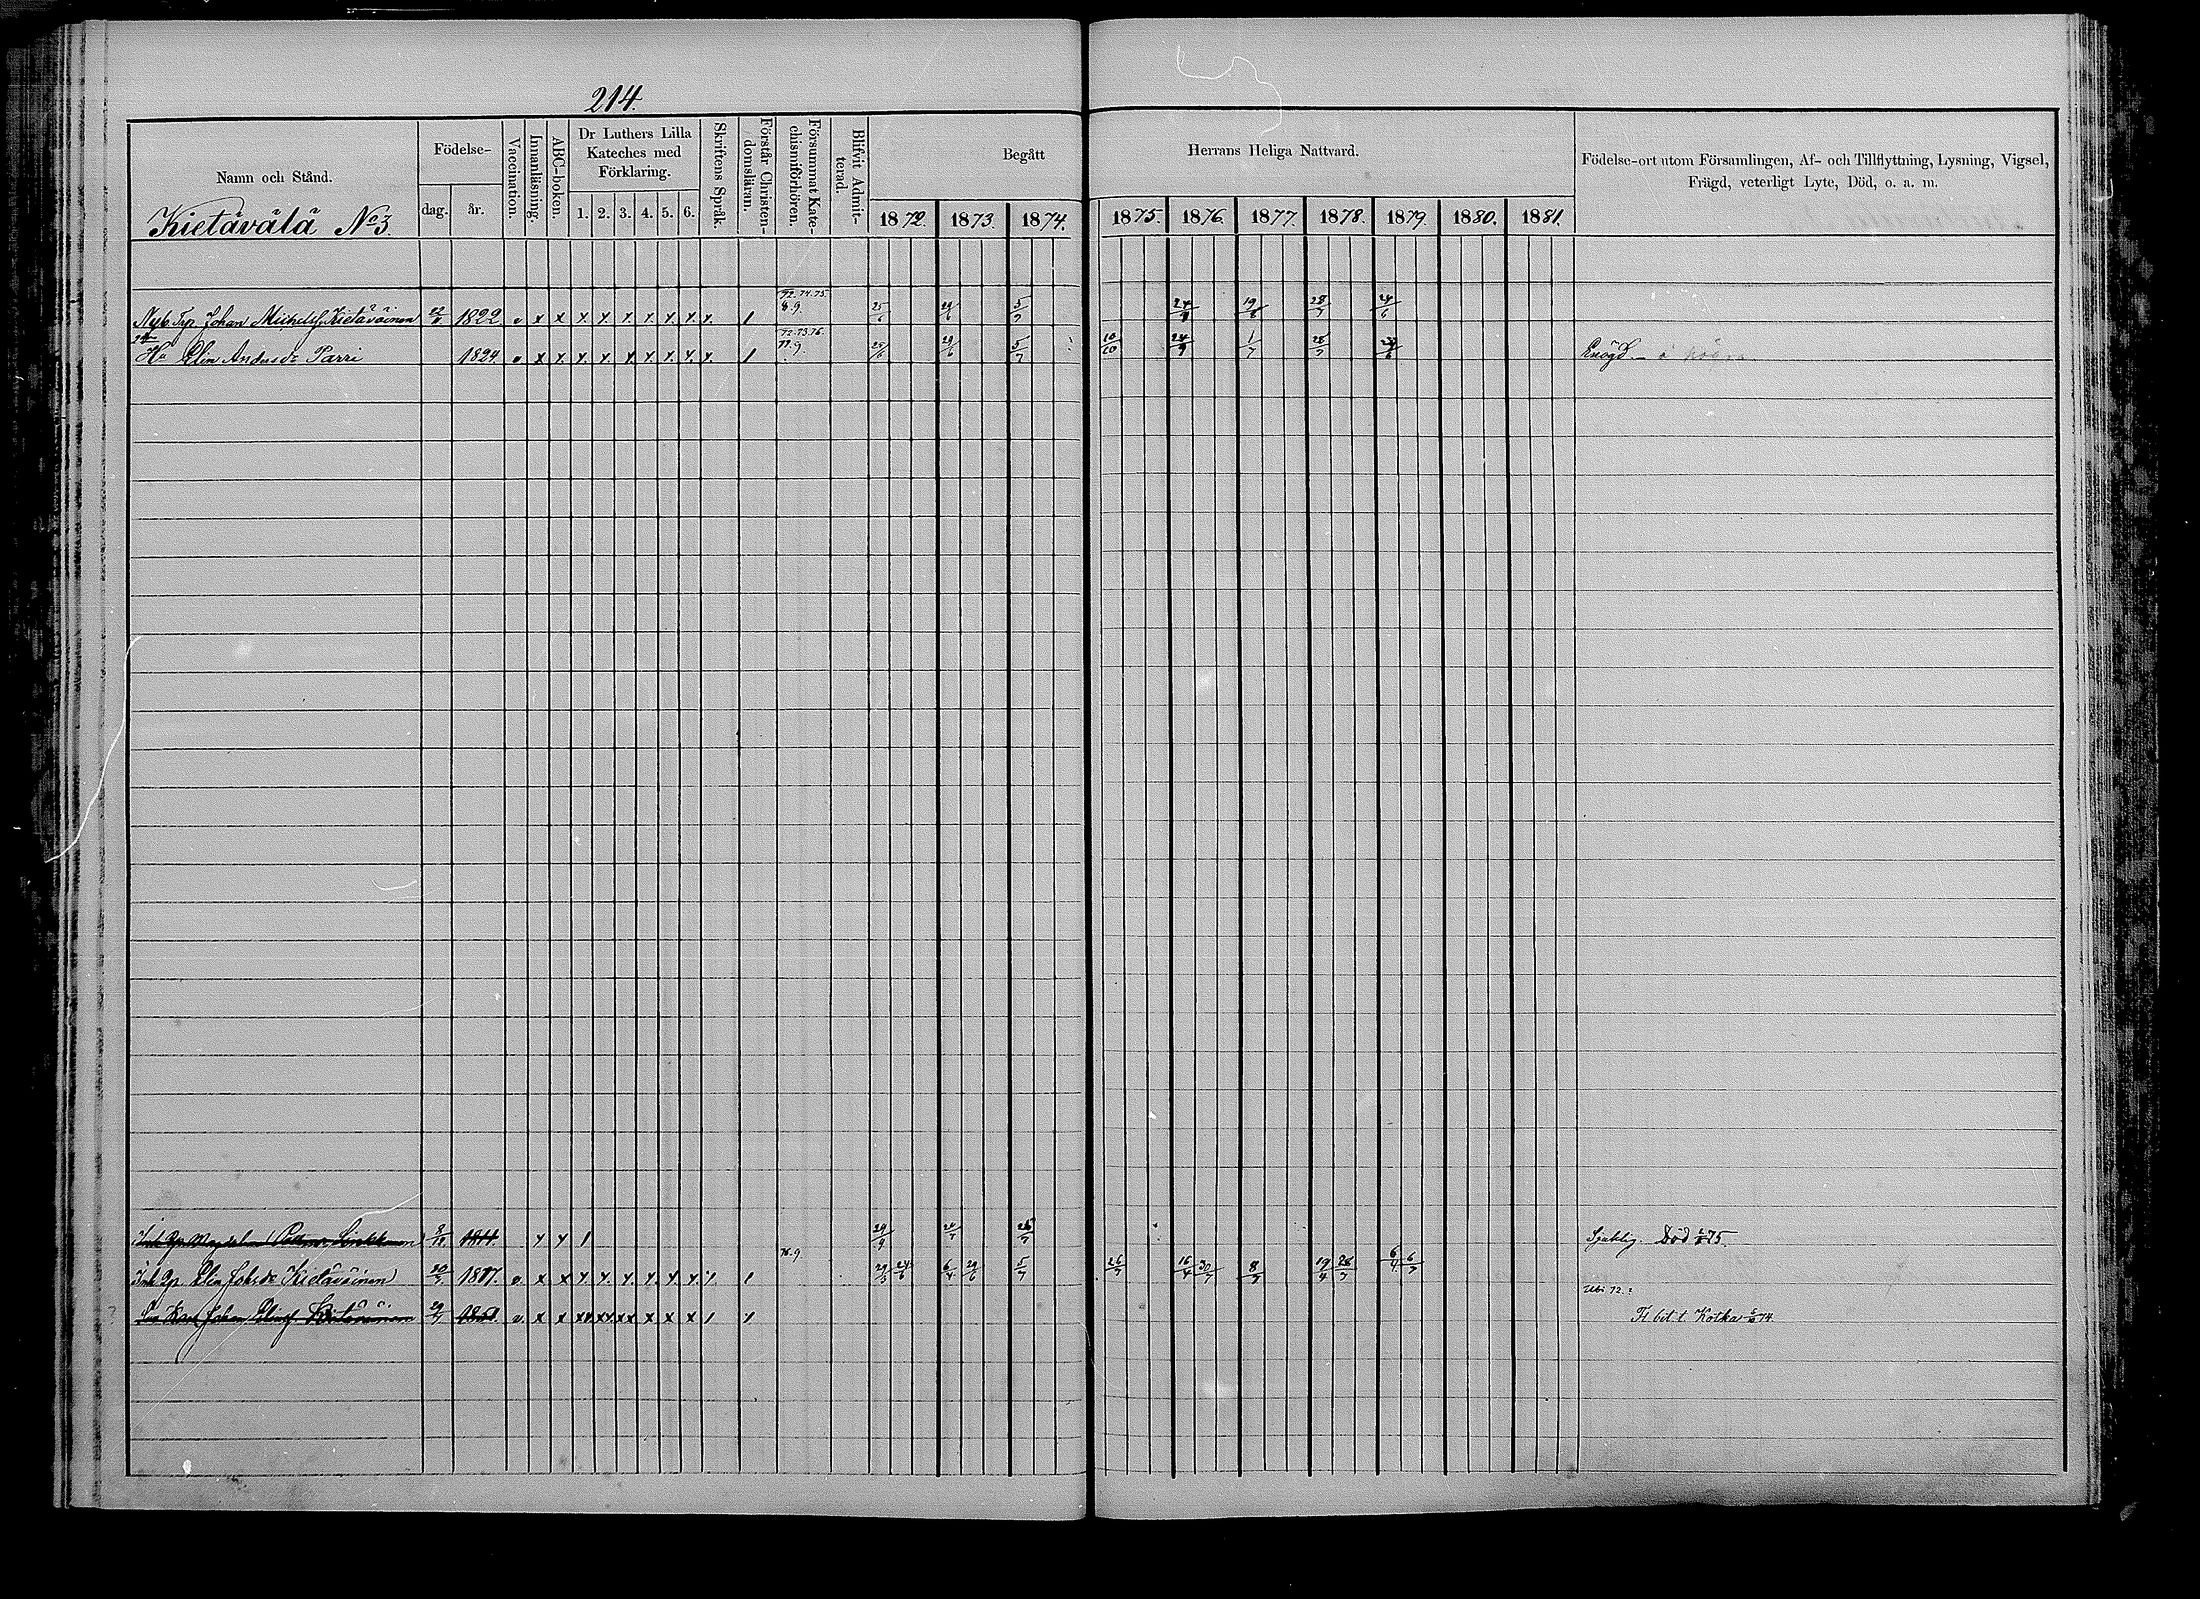 214.
Namn och Stånd. Födelse- Vaccination. Innanläsning. ABC-boken. Dr Luthers Lilla Kateches med Förklaring. Skriftens Språk. Förstår Christendomsläran. Försummat Katechismiförhören. Blifvit Admitterad. Begått Herrans Heliga Nattvard. Födelse-ort utom Församlingen, Af- och Tillflyttning, Lysning, Vigsel, Frägd, veterligt Lyte, Död, o. a. m.
dag. år. 1. 2. 3. 4. 5. 6. 1872. 1873. 1874. 1875. 1876. 1877. 1878. 1879. 1880. 1881.
Kietäválá No 3.
72.74.75
Johan Michelsf. Kietäväinen 1822 v x x x x x x x x x. 1 8.9. 25/6 29/6 5/7 24/9 19/8 28/7 29/6
72.73.76.
Hu Elin Andersdr Parri 1824. v x x x x x x x x x. 1 77.9. 25/6 29/6 5/7 10/10 24/9 1/7 28/7 29/6 Enögd.
Magdalena 1811. x x 1 29/9 26/7 Sjuklig. Död 75.
76.9.
Elin Johsdr Kietäväinen 20/7 1817. v. x x x x. x. x x x. 1 29/3 24/6 6/4 29/6 5/7 26/7 16/4 30/7 8/7 19/4 28/7 6/4 6/7
Ubi 72.?
Karl Johan Elinsf. Kietäväinen 29/7 v. x x xx xx xx x x x 1 1 Fl bet t. Kotka 74.